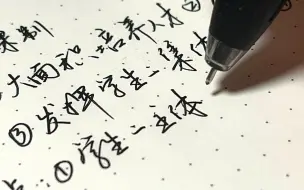 制
大面积培养人才②
③发挥学生一集体
①学生一主体